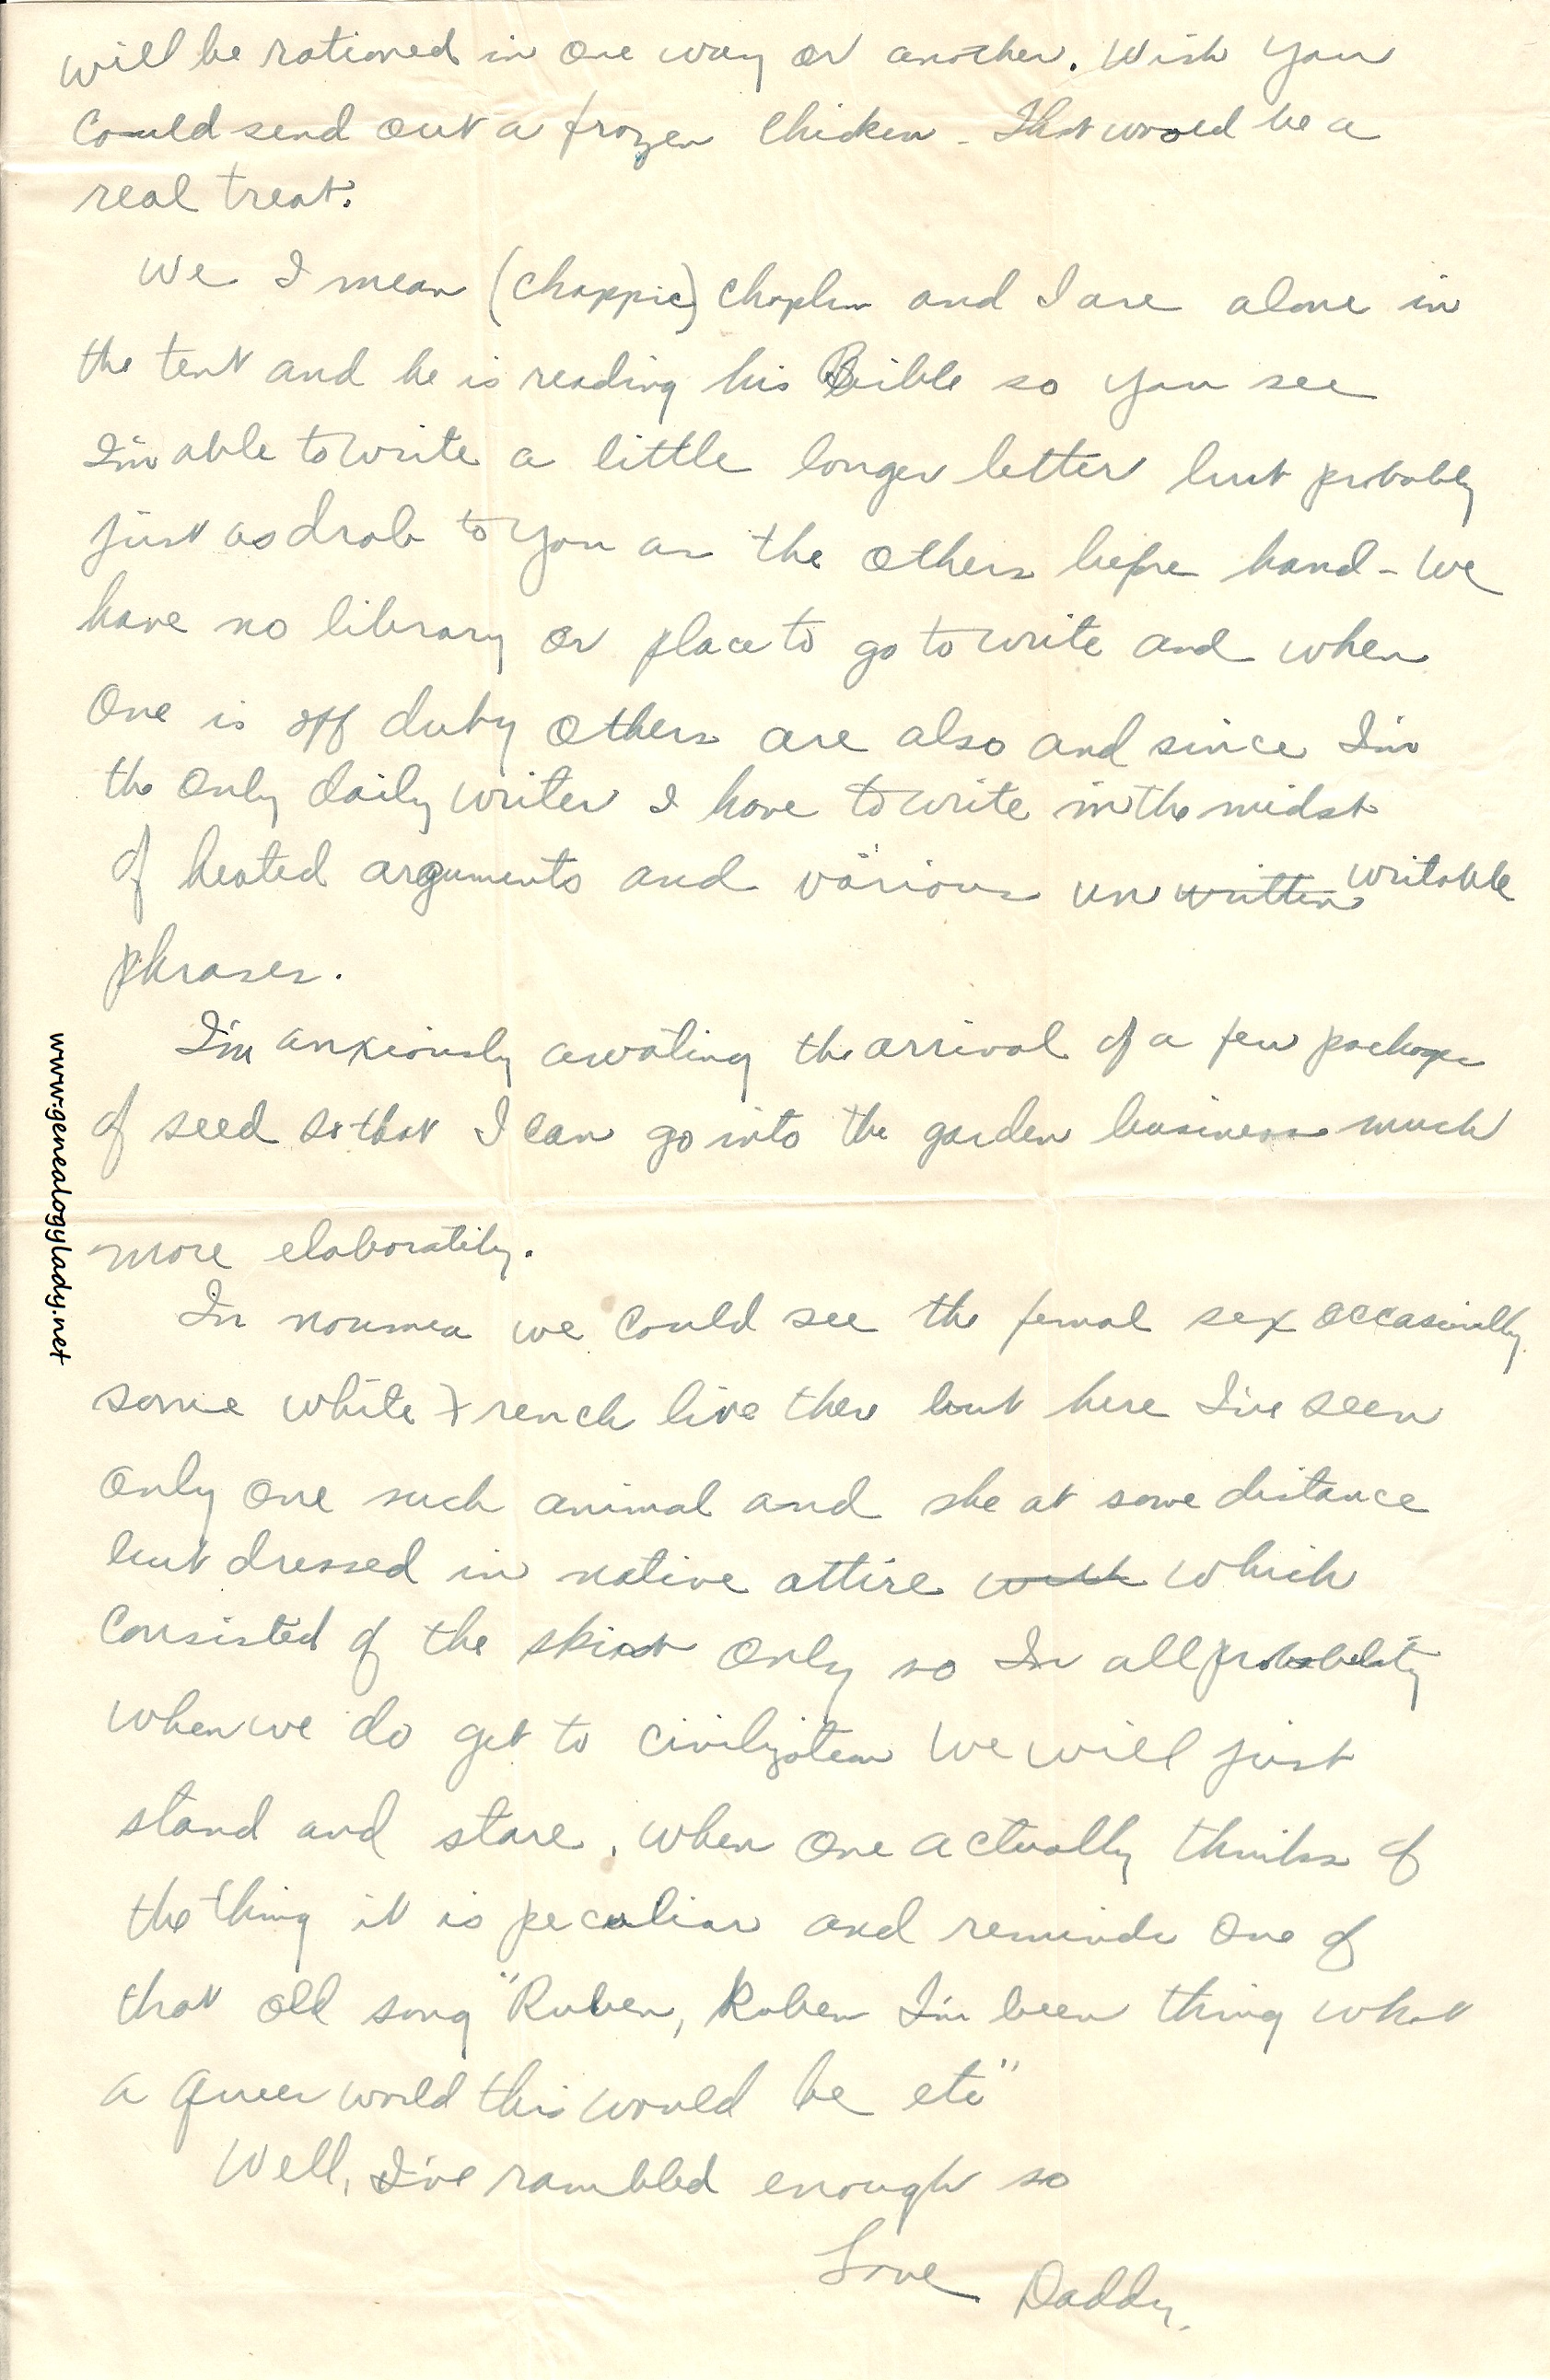 will be rationed in one way or another. Wish you
could send out a frozen chicken - That would be a
real treat.
We I mean (chappie) chaplin and I are alone in
the tent and he is reading his Bible so you see
I'm able to write a little longer letter but probably
just as drab to you as the others before hand - We
have no library or place to go to write and when
one is off duty others are also and since I'm
the only daily writer I have to write in the midst
of heated arguments and various un written writable
phrases.
I'm anxiously awating the arrival of a few package
of seed so that I can go into the garden business much
more elaboratily.
In noumea we could see the femal sex occasionally
some white French live ther but here I've seen
only one such animal and she at some distance
but dressed in native attire with which
consisted of the skirt only so In all probability
when we do get to civilization we will just
stand and stare. When one actually thinks of
the thing it is peculiar and reminds one of
that old song "Ruben, Ruben I'm been thing what
a queer world this would be etc"
Well, I've rambled enough so
Love Daddy.
www.genealogylady.net